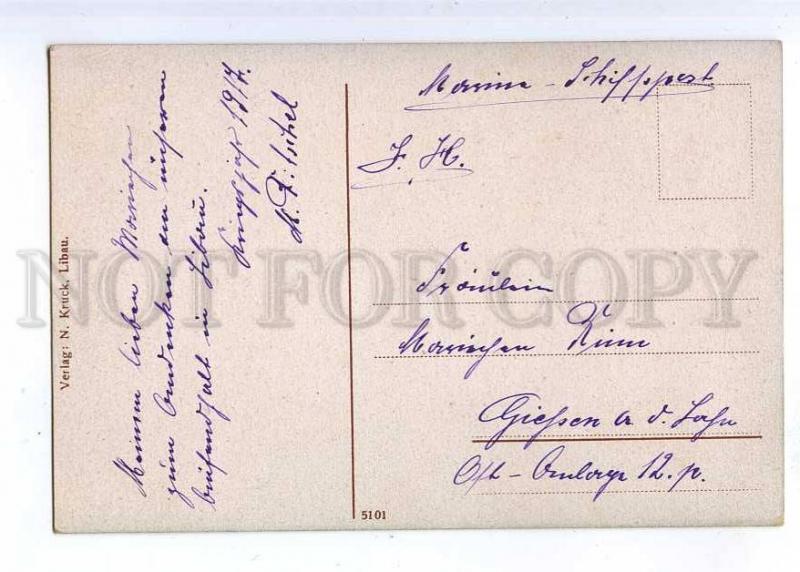 Meinem lieben Mariechen
zum Andenken an unseren
Aufenthalt in Libau.
Kriegsjahr 1917.
Verlag: N. Kruck, Libau.
Marine-Schiffspost
F. H.
Fräulein
Mariechen Rinn
Gießen a. d. Lahn
Ost-Anlage 12. p.
5101
NOT FOR COPY